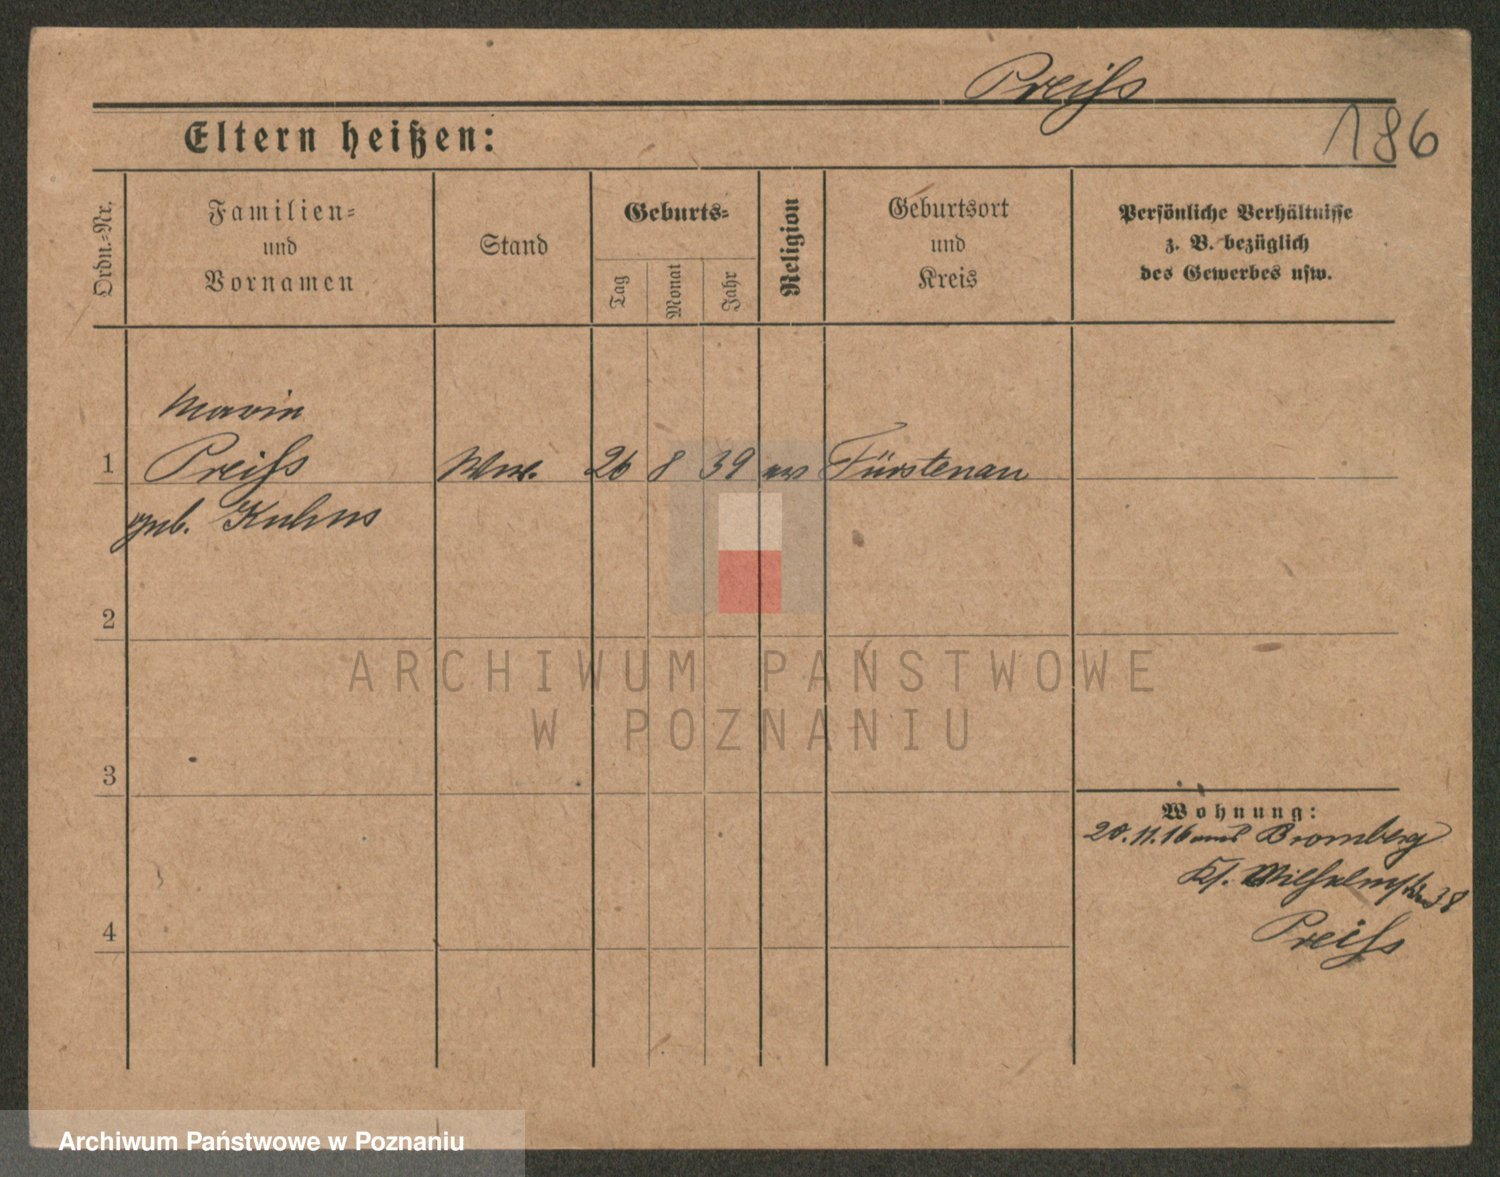 Preiß
186
Eltern heißen:
Ordn.-Nr.
Familien-
und
Vornamen
Stand
Geburts-
Tag
Monat
Jahr
Religion
Geburtsort
und
Kreis
Persönliche Verhältnisse
z. B. bezüglich
des Gewerbes usw.
Marie
1 Preiß Ww. 26 8 39 ev Fürstenau
geb. Kuhns
2
ARCHIWUM PAŃSTWOWE
W POZNANIU
3
Wohnung:
20.11.16 aus Bromberg
Wilhelmstr 38
4
Preiß
Archiwum Państwowe w Poznaniu